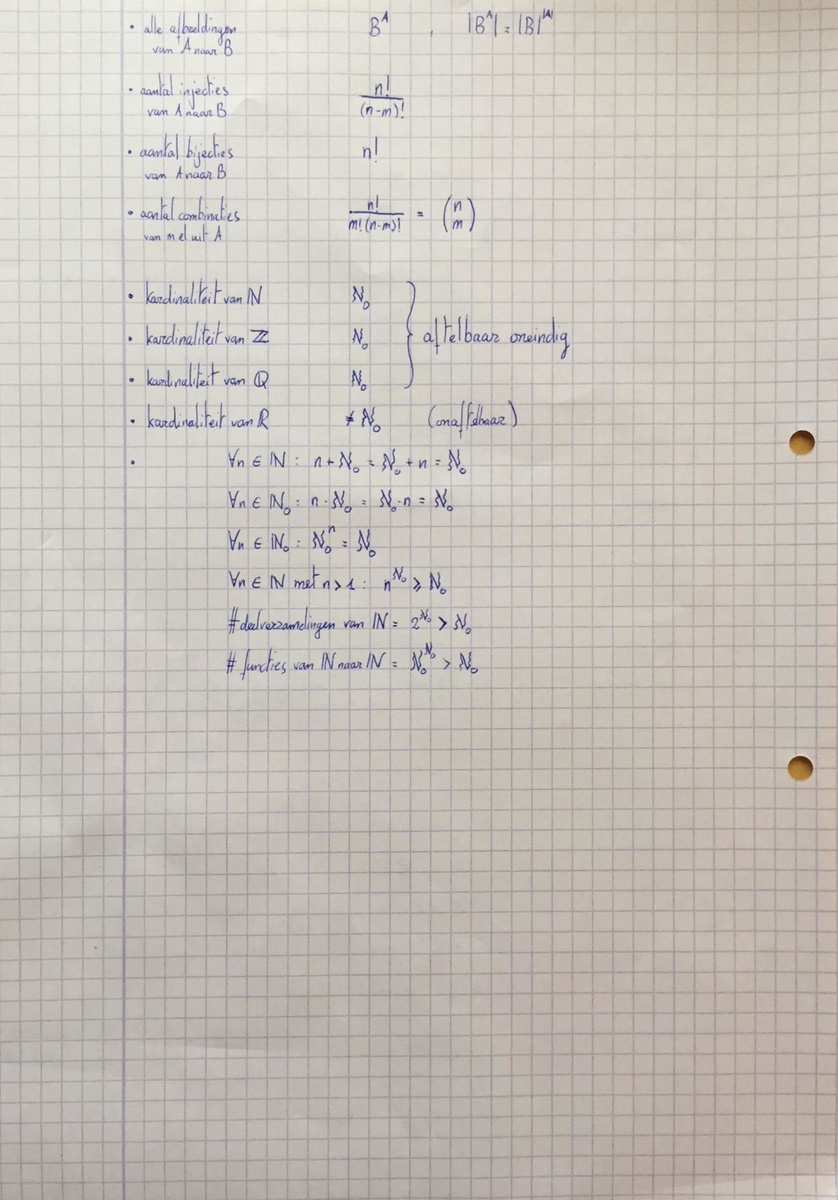 • alle afbeeldingen van A naar B B^A , |B^A| = |B|^|A|
• aantal injecties van A naar B n!/(n-m)!
• aantal bijecties van A naar B n!
• aantal combinaties van m el uit A n!/(m!(n-m)!) = (n m)
• kardinaliteit van ℕ ℵ₀
• kardinaliteit van ℤ ℵ₀ } aftelbaar oneindig
• kardinaliteit van ℚ ℵ₀
• kardinaliteit van ℝ ≠ ℵ₀ (onaftelbaar)
• ∀n ∈ ℕ : n + ℵ₀ = ℵ₀ + n = ℵ₀
∀n ∈ ℕ₀ : n · ℵ₀ = ℵ₀ · n = ℵ₀
∀n ∈ ℕ₀ : ℵ₀^n = ℵ₀
∀n ∈ ℕ met n > 1 : n^ℵ₀ ⩾ ℵ₀
# deelverzamelingen van ℕ = 2^ℵ₀ > ℵ₀
# functies van ℕ naar ℕ = ℵ₀^ℵ₀ > ℵ₀